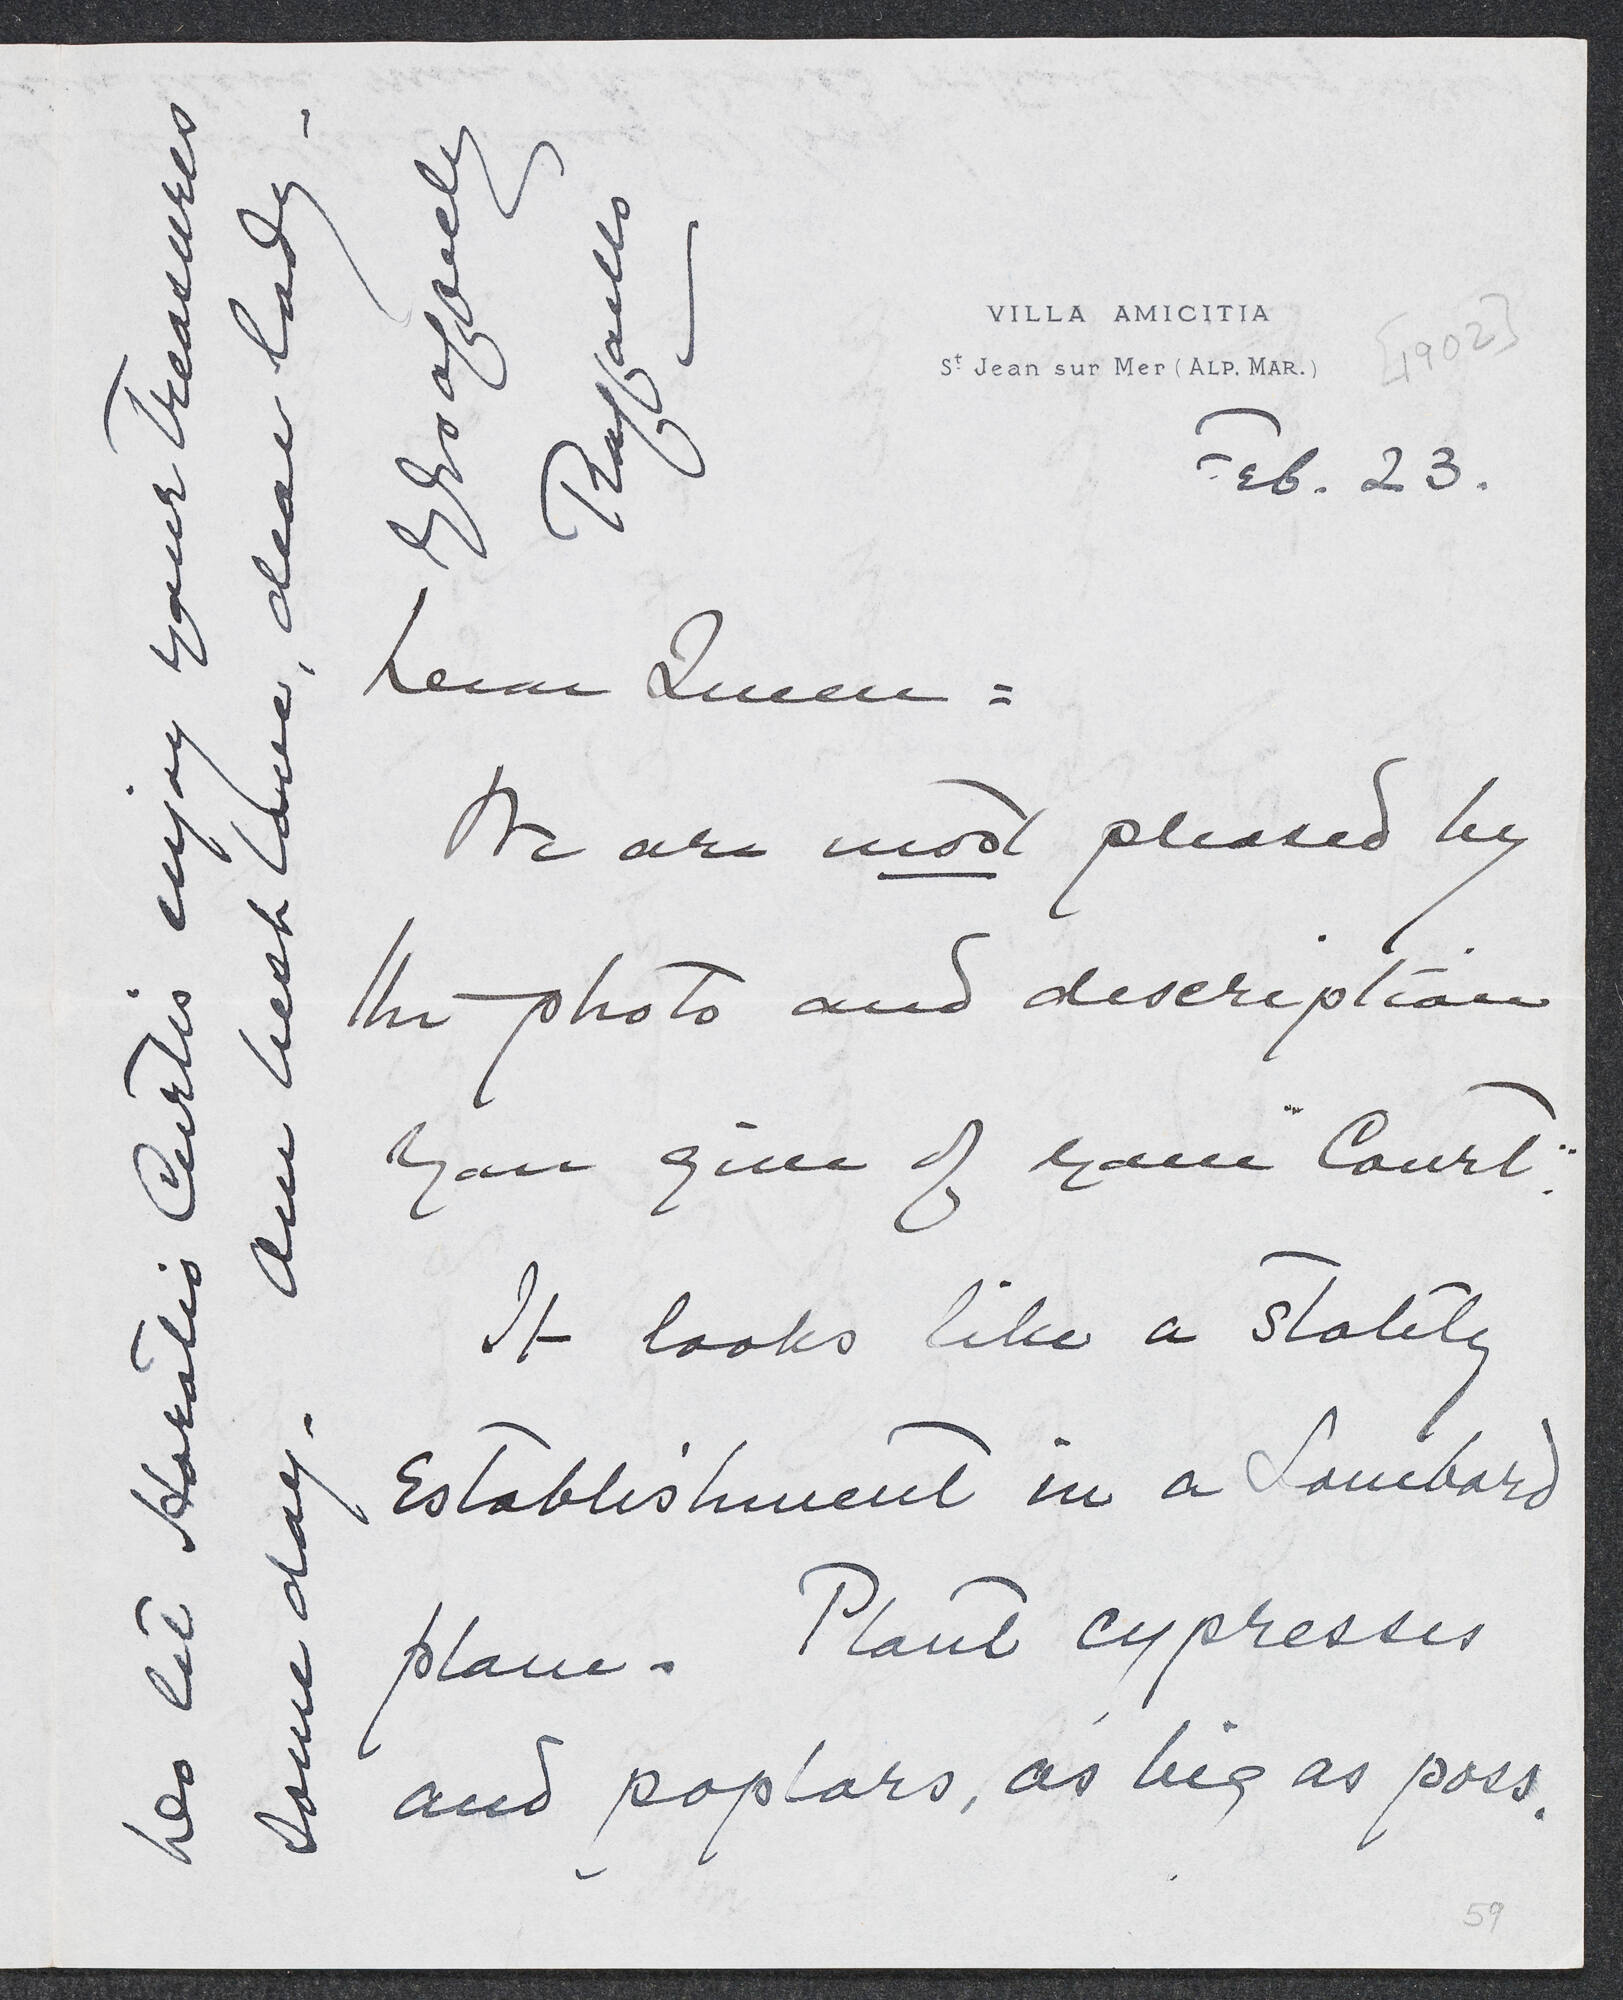 VILLA AMICITIA
St Jean sur Mer (ALP. MAR.)
[1902]
Feb. 23.
Dear Queen =
We are most pleased by
the photo and description
you give of your "Court".
It looks like a stately
Establishment in a Lombard
plain. Plant cypresses
and poplars, as big as poss.
59
Do let Horatio Curtis enjoy your treasures
some day. Our best love, dear lady -
Yrs affcly
Ralph